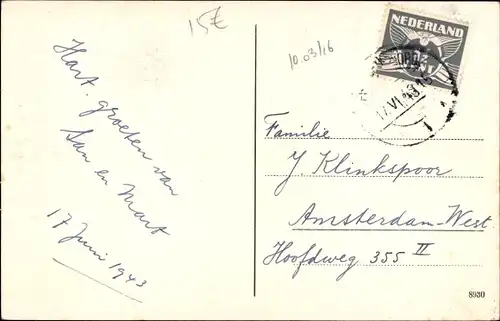 15€
10.03/16
NEDERLAND
17.VI.43
Hart. groeten van
en Mart
17 Juni 1943
Familie
J. Klinkspoor
Amsterdam-West
Hoofdweg 355 II
8930